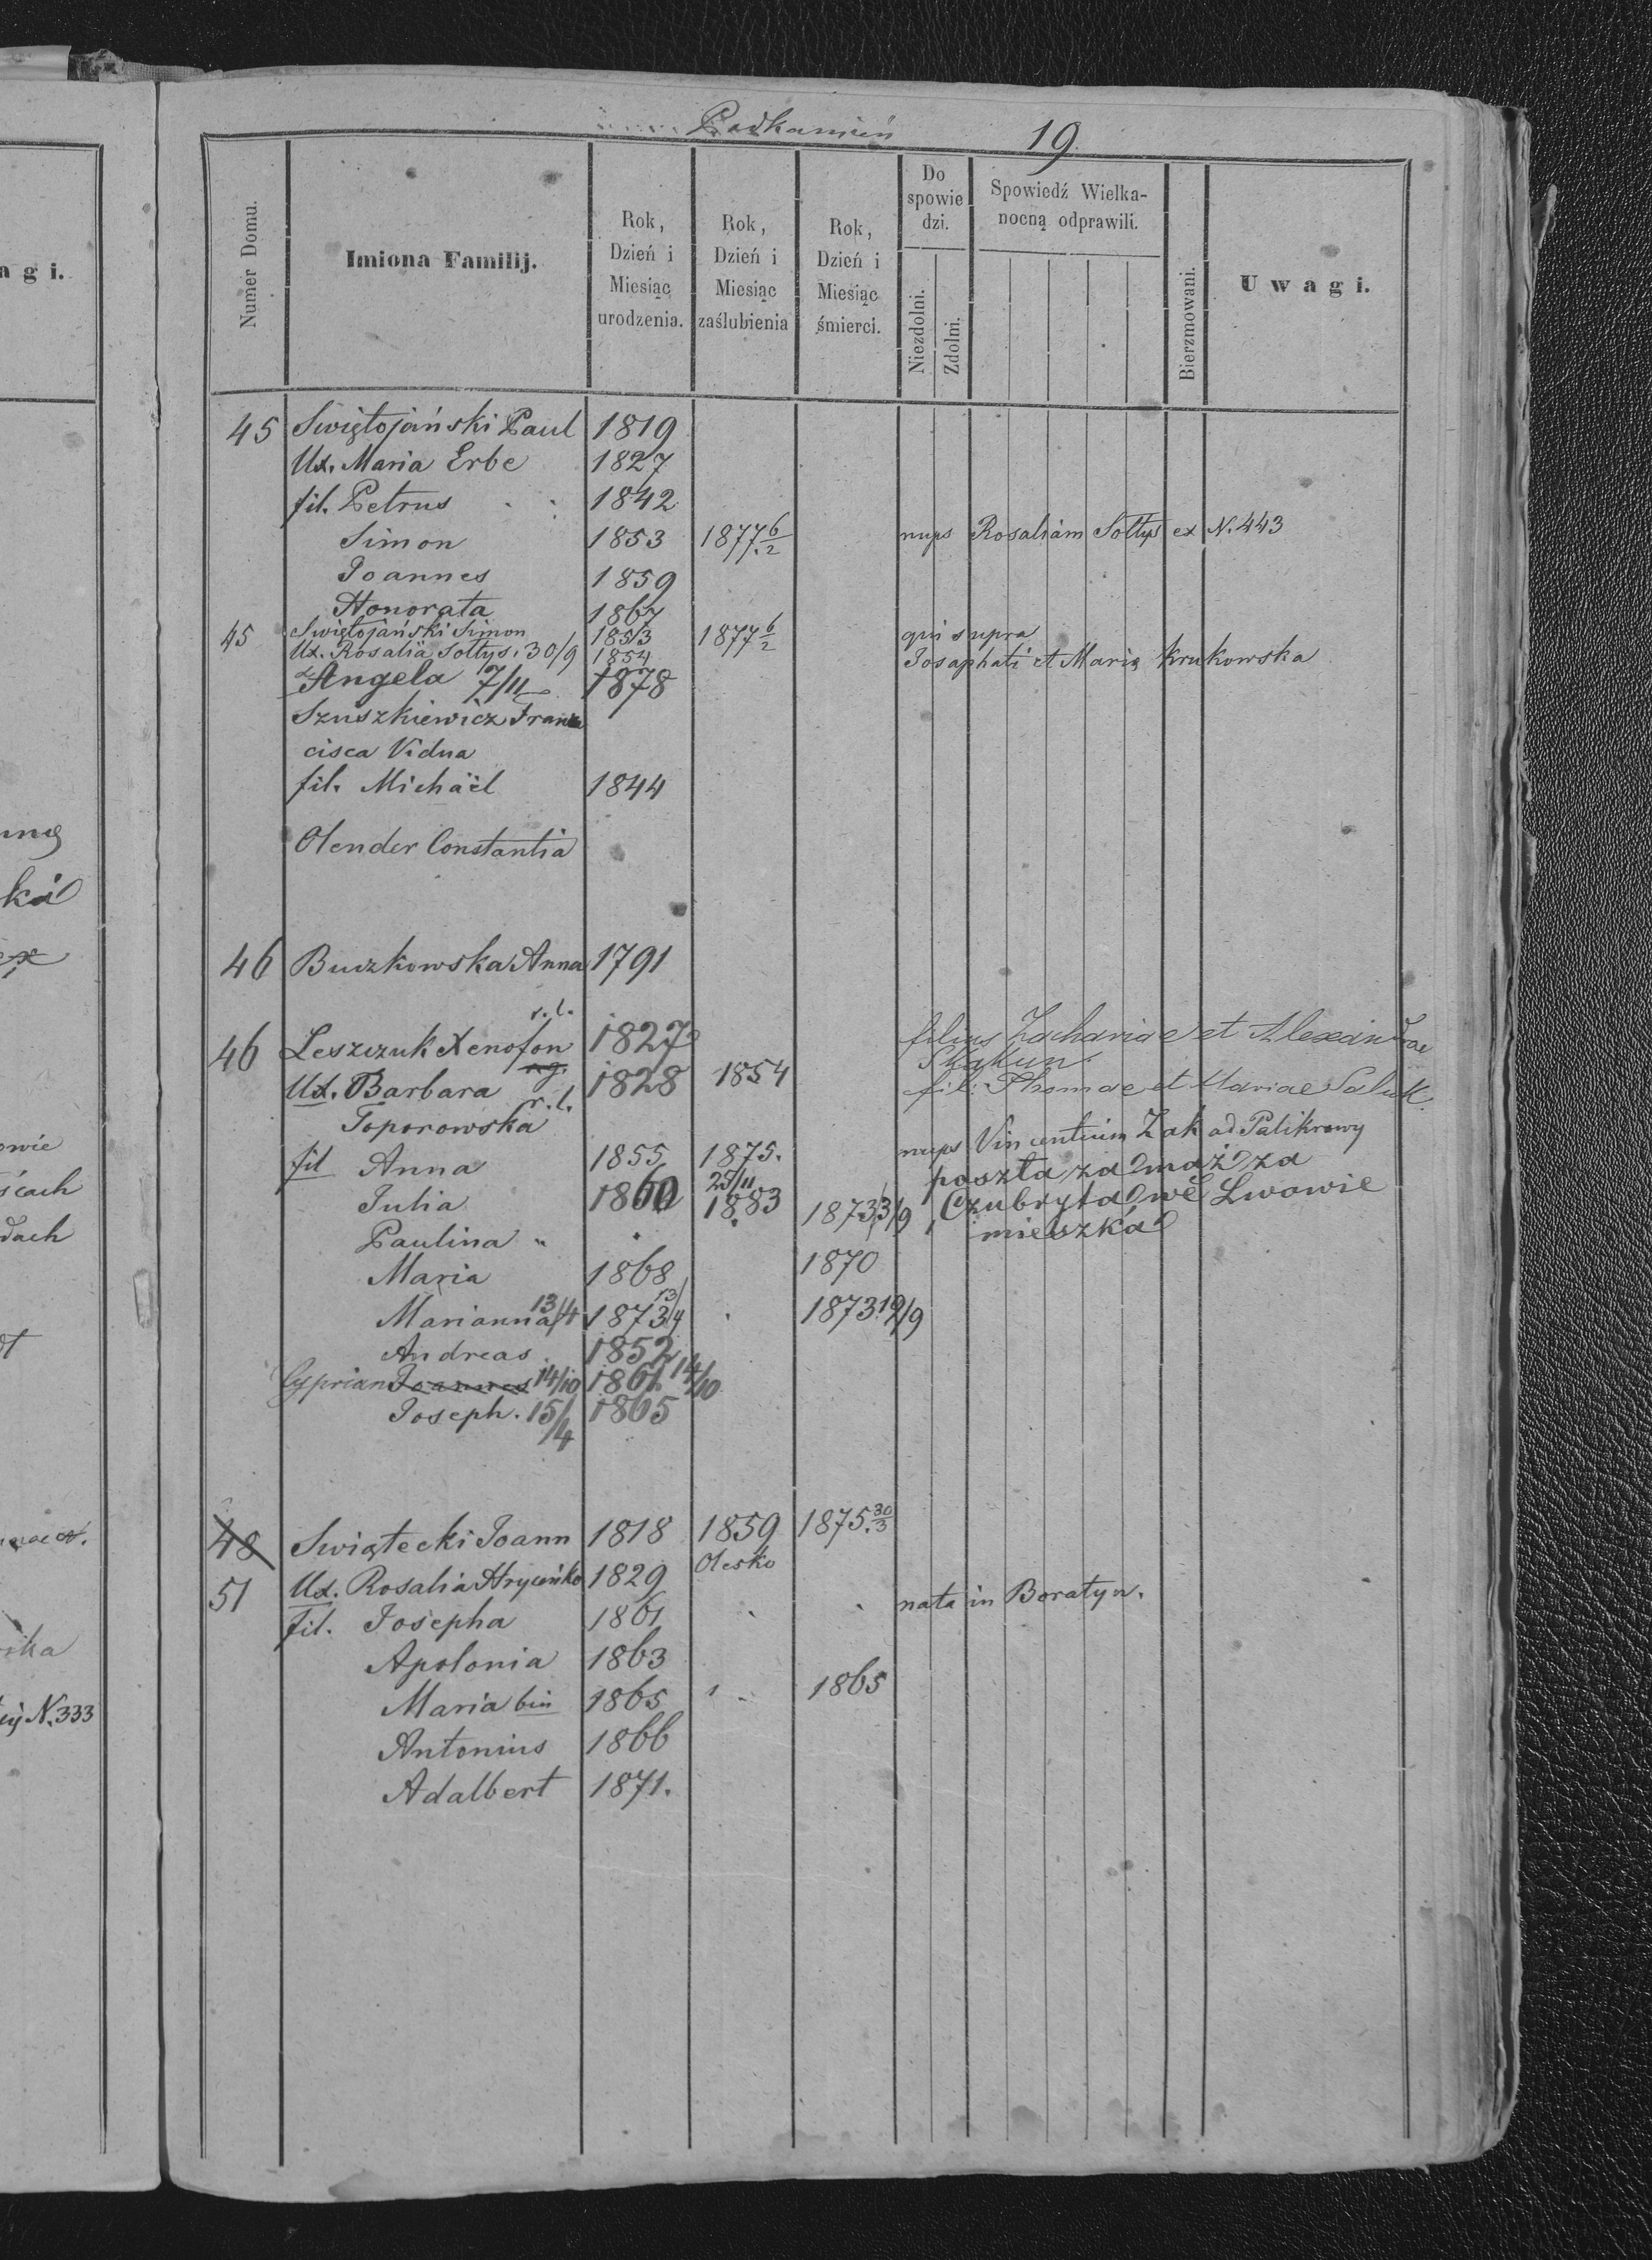 Podkamień 19.
Numer Domu.
Imiona Familij.
Rok, Dzień i Miesiąc urodzenia.
Rok, Dzień i Miesiąc zaślubienia
Rok, Dzień i Miesiąc śmierci.
Do spowiedzi.
Niezdolni.
Zdolni.
Spowiedź Wielkanocną odprawili.
Bierzmowani.
Uwagi.
45 Swiętojański Paul 1819
Ux. Maria Erbe 1827
fil. Petrus 1842
Simon 1853 1877 6/2 nups Rosaliam Sołtys ex N. 443
Joannes 1859
Honorata 1867
45 Swiętojański Simon 1853 1877 6/2 qui supra
Ux. Rosalia Sołtys. 30/9 1854 Josaphati et Maria Krukowska
Angela 7/11 1878
Szuszkiewicz Fran
cisca Vidua
fil. Michaël 1844
Olender Constantia
46 Buczkowska Anna 1791
r. l.
46 Leszczuk Xenofon 1827 filius Zachariae et Alexandrae
Skakun
Ux. Barbara 1828 1854 fil: Thomae et Mariae
r. l.
Toporowska
fil Anna 1855 1875. nups Vincentium Żak ad Palikrowy
Julia 1860 25/11 1883 1873 3/9 poszła za mąż za
Czubryta we Lwowie
mieszka
Paulina "
Maria 1868 1870
Marianna 13/4 1873 13/4 1873 19/9
Andreas 1852
Cyprian Joannes 14/10 1861. 14/10
Joseph. 15/4 1865
48 Swiątecki Joann 1818 1859 1875. 30/3
Olesko
51 Ux. Rosalia Hrycińko 1829 nata in Boratyn.
fil. Josepha 1861
Apolonia 1863
Maria bin 1865 1865
Antonius 1866
Adalbert 1871.
agi.
N. 333